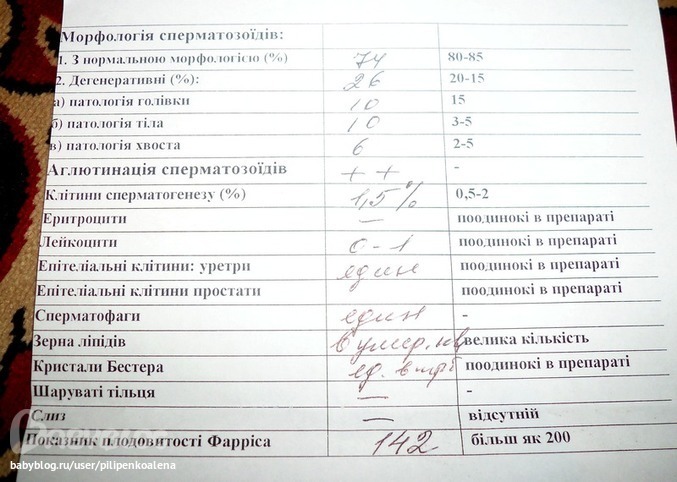 Морфологія сперматозоїдів:
1. З нормальною морфологією (%) 74 80-85
2. Дегенеративні (%): 26 20-15
а) патологія голівки 10 15
б) патологія тіла 10 3-5
в) патологія хвоста 6 2-5
Аглютинація сперматозоїдів ++ -
Клітини сперматогенезу (%) 1,5% 0,5-2
Еритроцити — поодинокі в препараті
Лейкоцити 0-1 поодинокі в препараті
Епітеліальні клітини: уретри един поодинокі в препараті
Епітеліальні клітини простати поодинокі в препараті
Сперматофаги един -
Зерна ліпідів в умер. велика кількість
Кристали Бестера ед. в поодинокі в препараті
Шаруваті тільця — -
Слиз — відсутній
Показник плодовитості Фарріса 142 більш як 200
babyblog.ru/user/pilipenkoalena